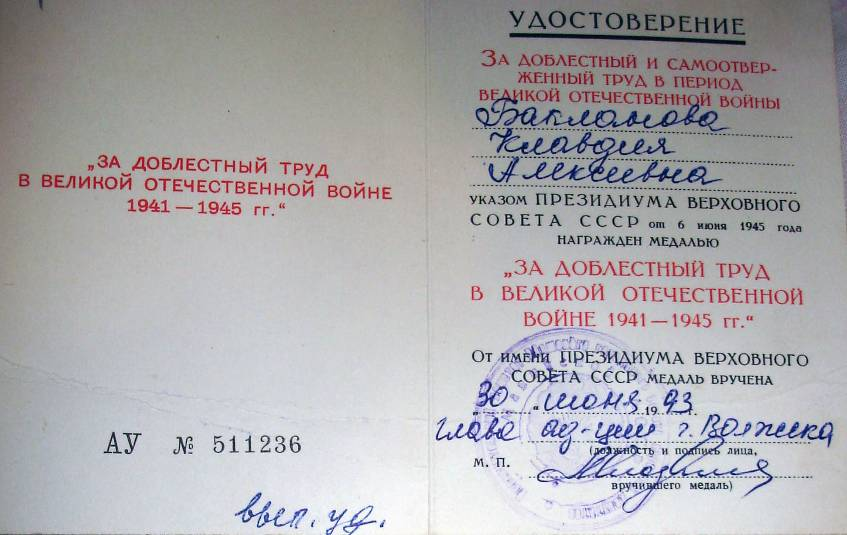 „ЗА ДОБЛЕСТНЫЙ ТРУД
В ВЕЛИКОЙ ОТЕЧЕСТВЕННОЙ ВОЙНЕ
1941 — 1945 гг.“
АУ № 511236
вып. уд.
УДОСТОВЕРЕНИЕ
ЗА ДОБЛЕСТНЫЙ И САМООТВЕР-
ЖЕННЫЙ ТРУД В ПЕРИОД
ВЕЛИКОЙ ОТЕЧЕСТВЕННОЙ ВОЙНЫ
Бакланова
Клавдия
Алексеевна
УКАЗОМ ПРЕЗИДИУМА ВЕРХОВНОГО
СОВЕТА СССР от 6 июня 1945 года
НАГРАЖДЕН МЕДАЛЬЮ
„ЗА ДОБЛЕСТНЫЙ ТРУД
В ВЕЛИКОЙ ОТЕЧЕСТВЕННОЙ
ВОЙНЕ 1941 — 1945 гг.“
От имени ПРЕЗИДИУМА ВЕРХОВНОГО
СОВЕТА СССР МЕДАЛЬ ВРУЧЕНА
„30“ июня 1993 г.
глава ад-ции г. Волжска
(должность и подпись лица,
М. П.
вручившего медаль)